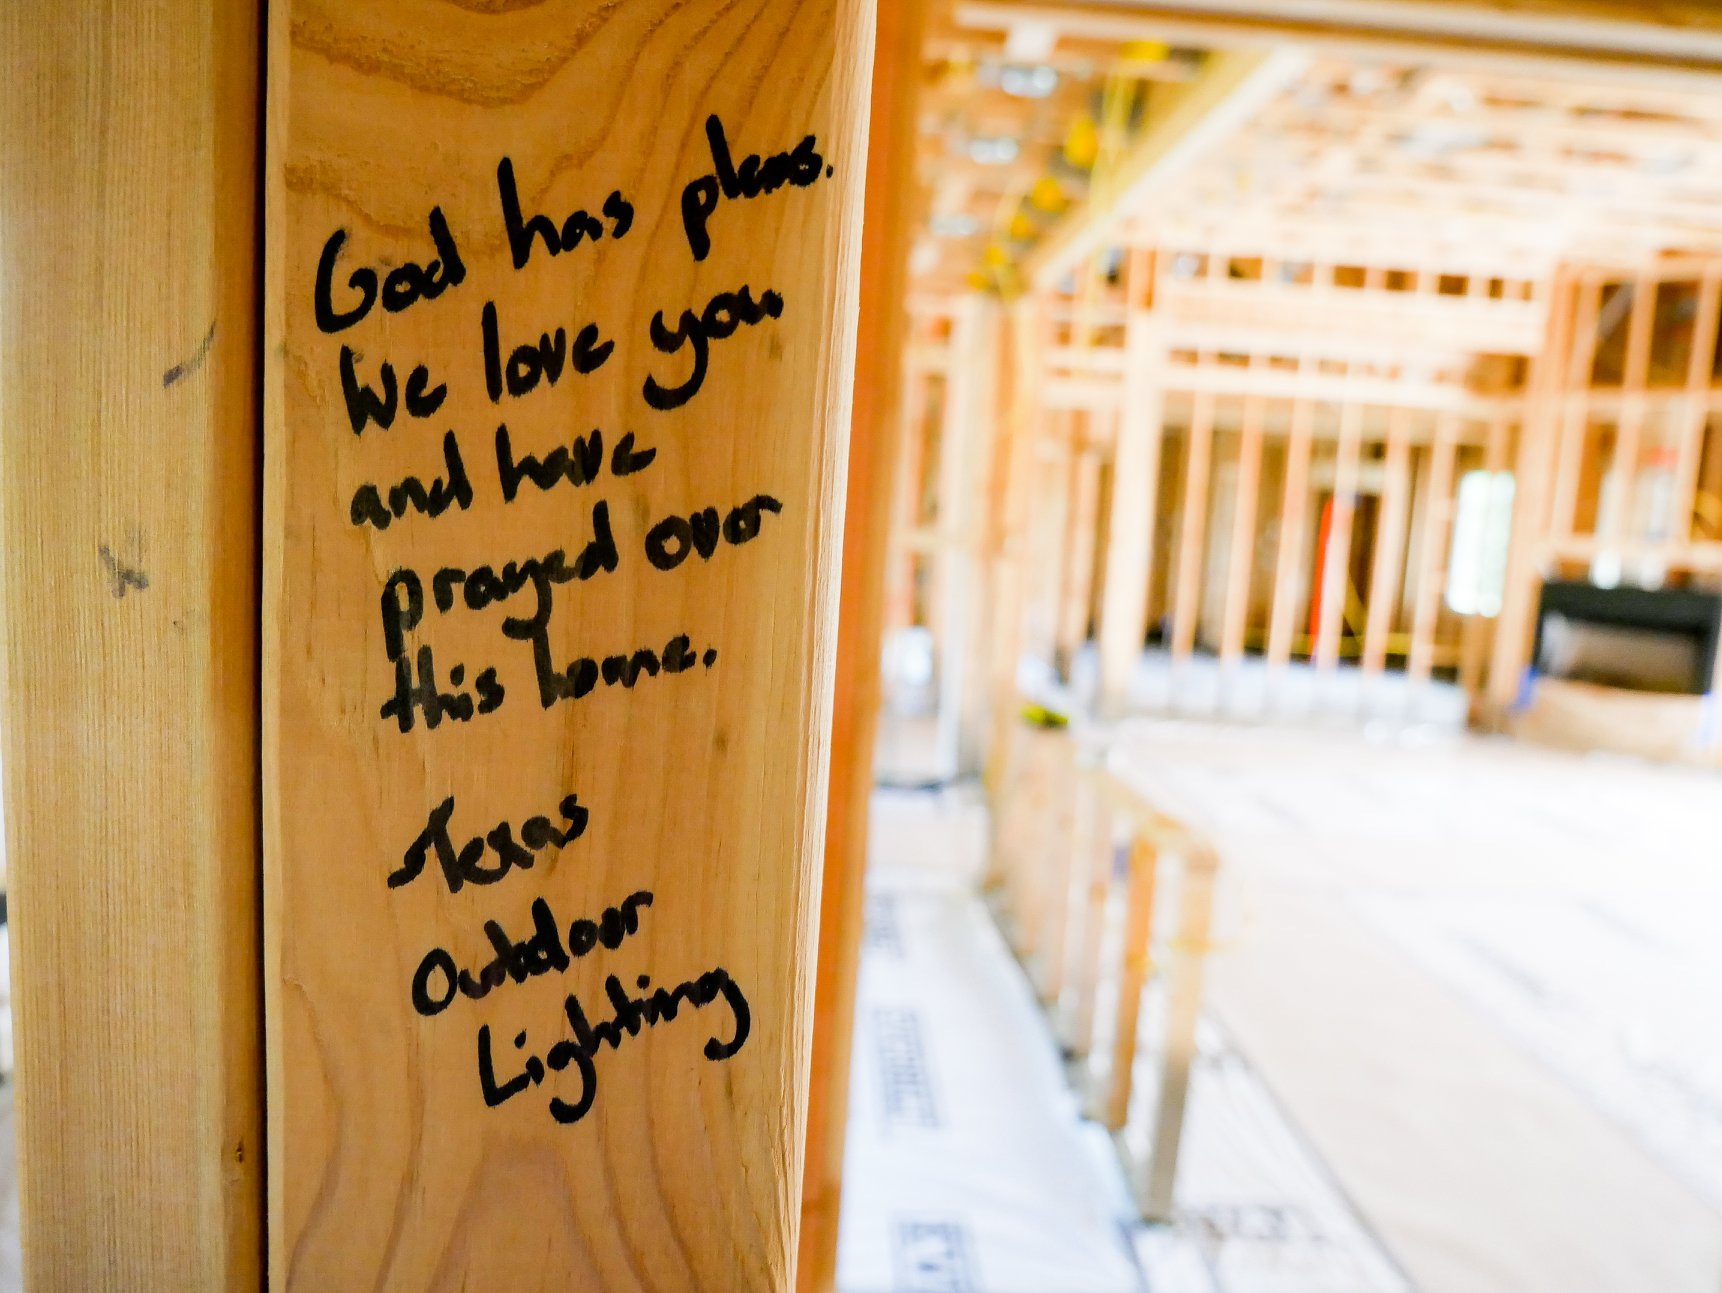 God has plans.
We love you
and have
prayed over
this home.
Texas
Outdoor
Lighting